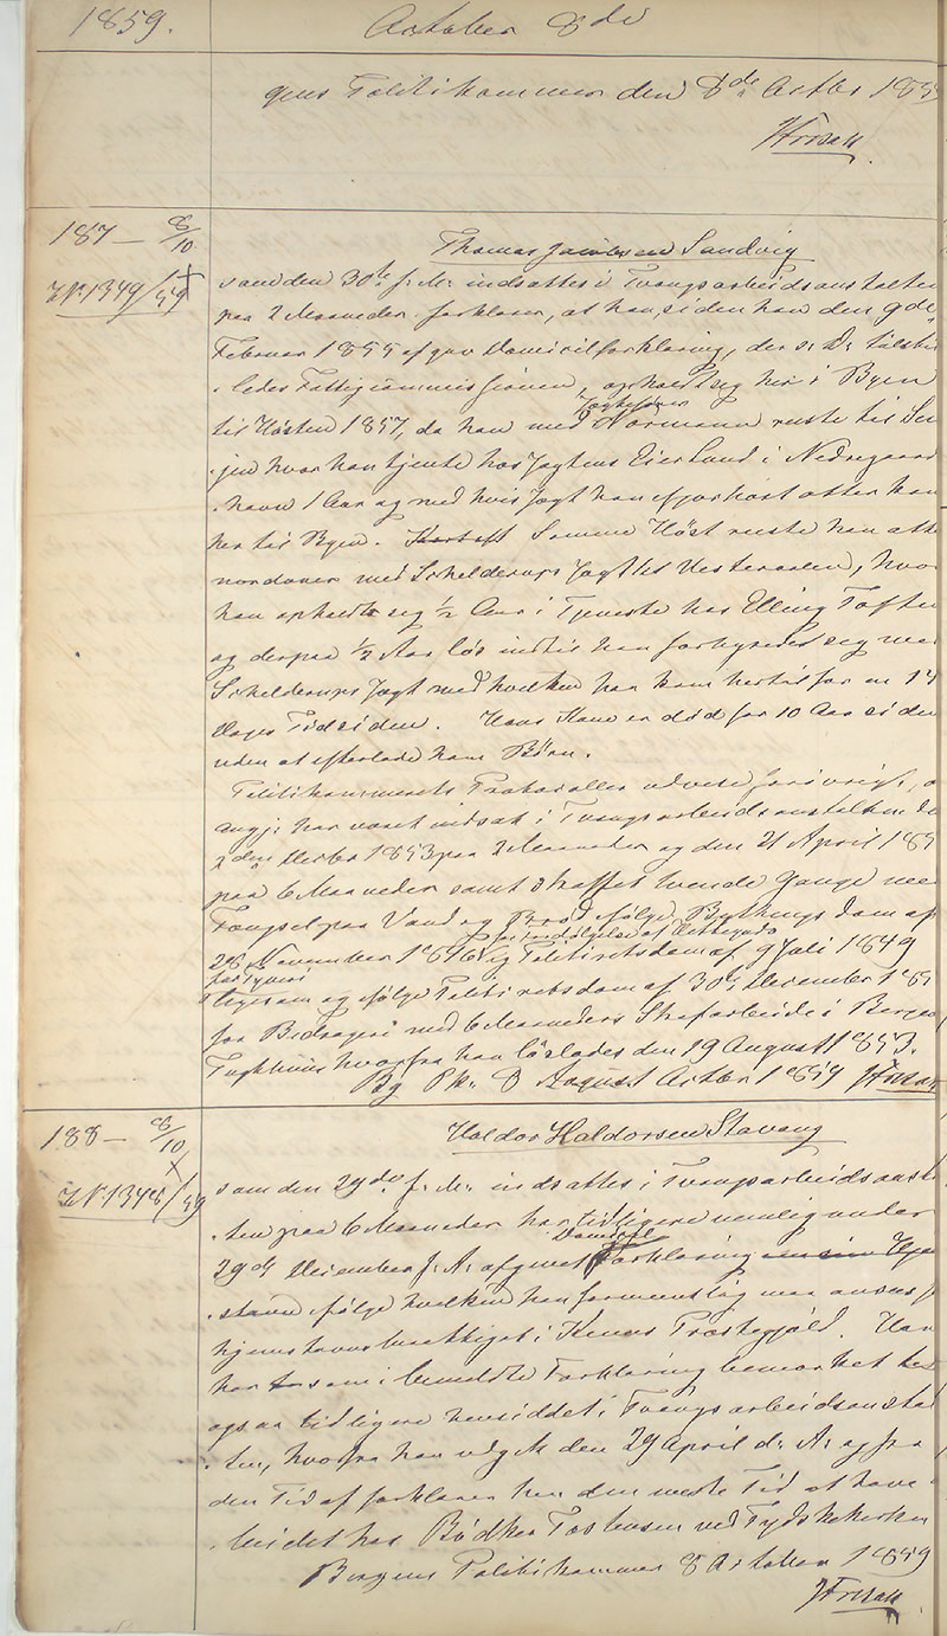 1859.
October 8de
gens Politikammer den 8de Octbr 185
187 — 8/10
Thomas Jacobsen Sandvig
som den 30te f: M: indsattes i Tvangsarbeidsanstalten
J.N. 1349/59
paa 2 Maaneder forklarer, at han, siden han den 9de
Februar 1855 afgav Domicilforklaring, der s: D: tilstil
ledes Fattigcommissionen, opholdt sig her i Byen
Jægtefører
til Høsten 1857, da han med Normann reiste til Sen
jen hvor han tjente hos Jægtens Eier Lund i Nedregaard
havn 1 Aar og med hvis Jægt han ifjorhøst atter kom
her til Byen. Samme Høst reiste han atte
nordover med Schelderups Jægt til Vesteraalen, hvor
han opholdt sig 1/2 Aar i Tjeneste hos Elling Tofte
og derpaa 1/2 Aar løs indtil han forhyrede sig med
Schelderups Jægt med hvilken han kom hertil for en 14
Dages Tid siden. Hans Kone er død for 10 Aar siden
uden at efterlade ham Børn.
Politikammerets Protocoller udvise forøvrigt, a
angj: har været indsat i Tvangsarbeidsanstalten de
2den Decbr 1853 paa 2 Maaneder og den 21 April 185
paa 6 Maaneder samt straffet tvende Gange me
Fængsel paa Vand og Brød ifølge Bythings Dom af
for Fordølgelse af Hittegods
28 November 1846 og Politiretsdom af 9 Juli 1849
for Tyveri
ligesom og ifølge Politiretsdom af 30te December 185
for Bedrageri med 6 Maaneders Strafarbeide i Bergen
Tugthuus hvorfra han løslades den 19 August 1853.
Bg Pk. 8 August Octbr 1859
188 — 8/10
Haldor Haldorsen Stavang
J.N. 1348/59
som den 29de f: M: indsattes i Tvangsarbeidsanstal
ten paa 6 Maaneder har tidligere nemlig under
Domicil
29de December f: A: afgivet Forklaring om sin Hjem
stavn ifølge hvilken han formentlig maa ansees
hjemstavnsberettiget i Kinns Præstegjæld. Han
har som i bemeldte Forklaring bemærket
ogsaa tidligere hensiddet i Tvangsarbeidsanstal
ten, hvorfra han udgik den 29 April d: A: og fra
den Tid af forklarer han den meste Tid at have
beidet hos Bødker Torstensen ved Tydskekirken
Bergens Politikammer 8 October 1859